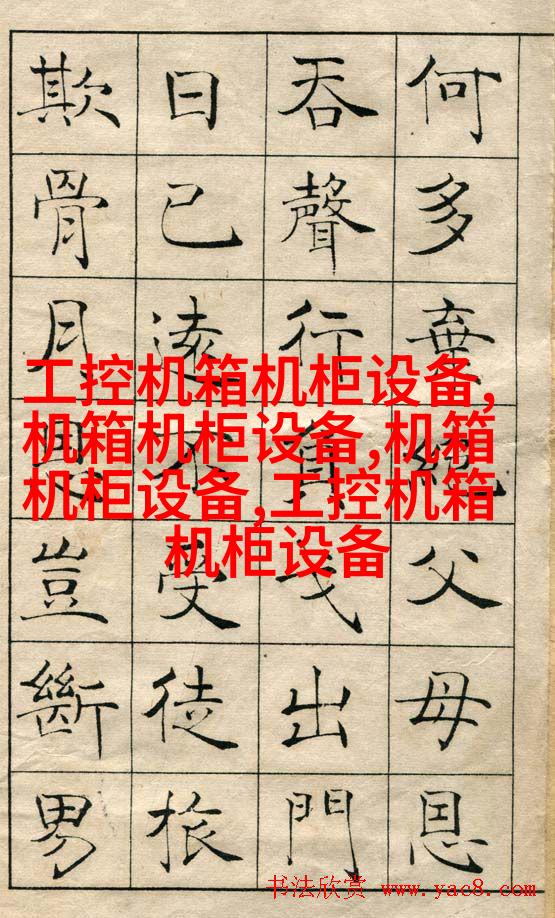 何多棄絶父母恩
吞聲行負戈出門
日已遠不受徒旅
欺骨月恩豈斷男
工控机箱机柜设备,
机箱机柜设备,机箱
机柜设备,工控机箱
机柜设备
书法欣赏 www.yac8.com